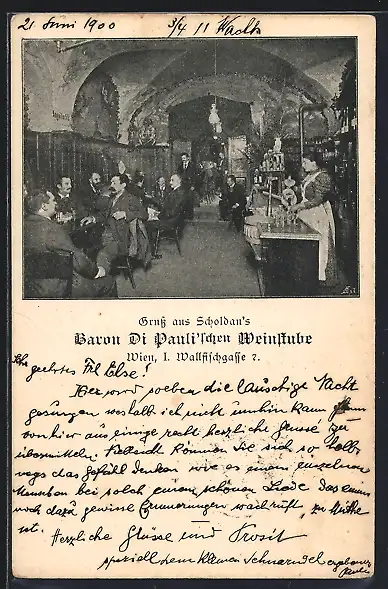 21. Juni 1900 3/4 11 Nachts
Gruß aus Scholdan's
Baron Di Pauli'schen Weinstube
Wien, I. Wallfischgasse 2.
geehrtes Frl Else!
Hier wird soeben die lauschige Nacht
gesungen weshalb ich nicht umhin kann Ihnen
von hier aus einige recht herzliche Grüsse zu
übermitteln. Vielleicht können Sie sich so halb-
wegs das Gefühl denken wie es einem einzelnen
Menschen bei solch einem schönen Liede das einem
noch dazu gewisse Erinnerungen wachruft, zu Muthe
ist.
Herzliche Grüsse und Prosit
speziell dem kleinen Schnarndel